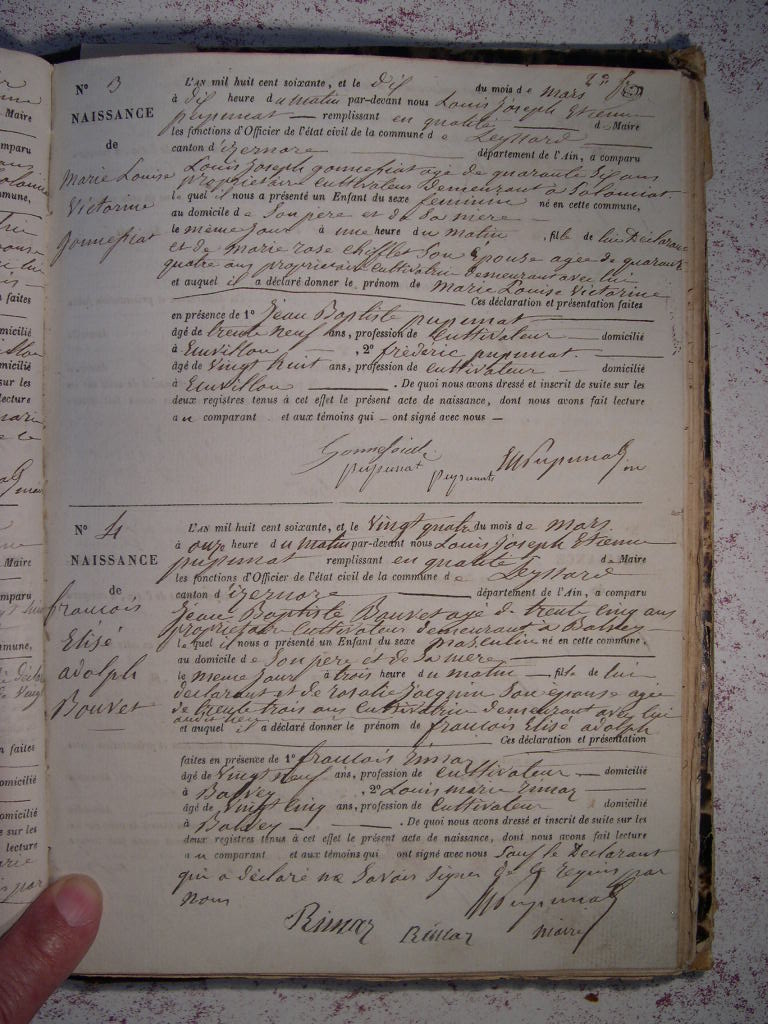 N° 3
NAISSANCE
de
Marie Louise
Victorine
gonnessiat
L'AN mil huit cent soixante, et le dix du mois de mars
à dix heure du matin par-devant nous Louis Joseph Etienne
pupunat — remplissant en qualité de Maire
les fonctions d'Officier de l'état civil de la commune de Leyssard
canton d'izernore département de l'Ain, a comparu
Louis Joseph gonnessiat agé de quarante six ans
propriétaire Cultivateur demeurant à Solomiat
lequel il nous a présenté un Enfant du sexe feminin né en cette commune,
au domicile de Son père et de Sa mère
le même jour à une heure du matin, fille de lui Déclarant
et de Marie rose chifflet Son épouse agée de quarante
quatre ans propriétaire Cultivatrice demeurant avec lui
et auquel il a déclaré donner le prénom de Marie Louise Victorine
Ces déclaration et présentation faites
en présence de 1° Jean Baptiste pupunat
âgé de trente neuf ans, profession de Cultivateur — domicilié
à Emvillou, 2° frédéric pupunat
âgé de Vingt huit ans, profession de cultivateur — domicilié
à Emvillou. De quoi nous avons dressé et inscrit de suite sur les
deux registres tenus à cet effet le présent acte de naissance, dont nous avons fait lecture
au comparant et aux témoins qui — ont signé avec nous —
pupunat
N° 4
NAISSANCE
de
francois
Elisé
adolph
Bouvet
L'AN mil huit cent soixante, et le Vingt quatre du mois de Mars
à onze heure du Matin par-devant nous Louis Joseph Etienne
pupunat remplissant en qualité de Maire
les fonctions d'Officier de l'état civil de la commune de Leyssard
canton d'izernore département de l'Ain, a comparu
Jean Baptiste Bouvet agé de trente cinq ans
propriétaire Cultivateur demeurant à Balvey
lequel il nous a présenté un Enfant du sexe masculin né en cette commune,
au domicile de Son père et de Sa mère
le même jour à trois heure du matin, fils de lui
déclarant et de rosalie Jacquin Son épouse agée
de trente trois ans Cultivatrice demeurant avec lui
et auquel il a déclaré donner le prénom de francois Elisé adolph
Ces déclaration et présentation
faites en présence de 1° francois Rimaz
âgé de Vingt neuf ans, profession de Cultivateur — domicilié
à Balvey, 2° Louis marie Rimaz
âgé de Vingt cinq ans, profession de Cultivateur domicilié
à Balvey. De quoi nous avons dressé et inscrit de suite sur les
deux registres tenus à cet effet le présent acte de naissance, dont nous avons fait lecture
au comparant et aux témoins qui ont signé avec nous Sauf le Déclarant
qui a déclaré ne Savoir Signer de ce requis par
nous
Rimaz Rimaz maire